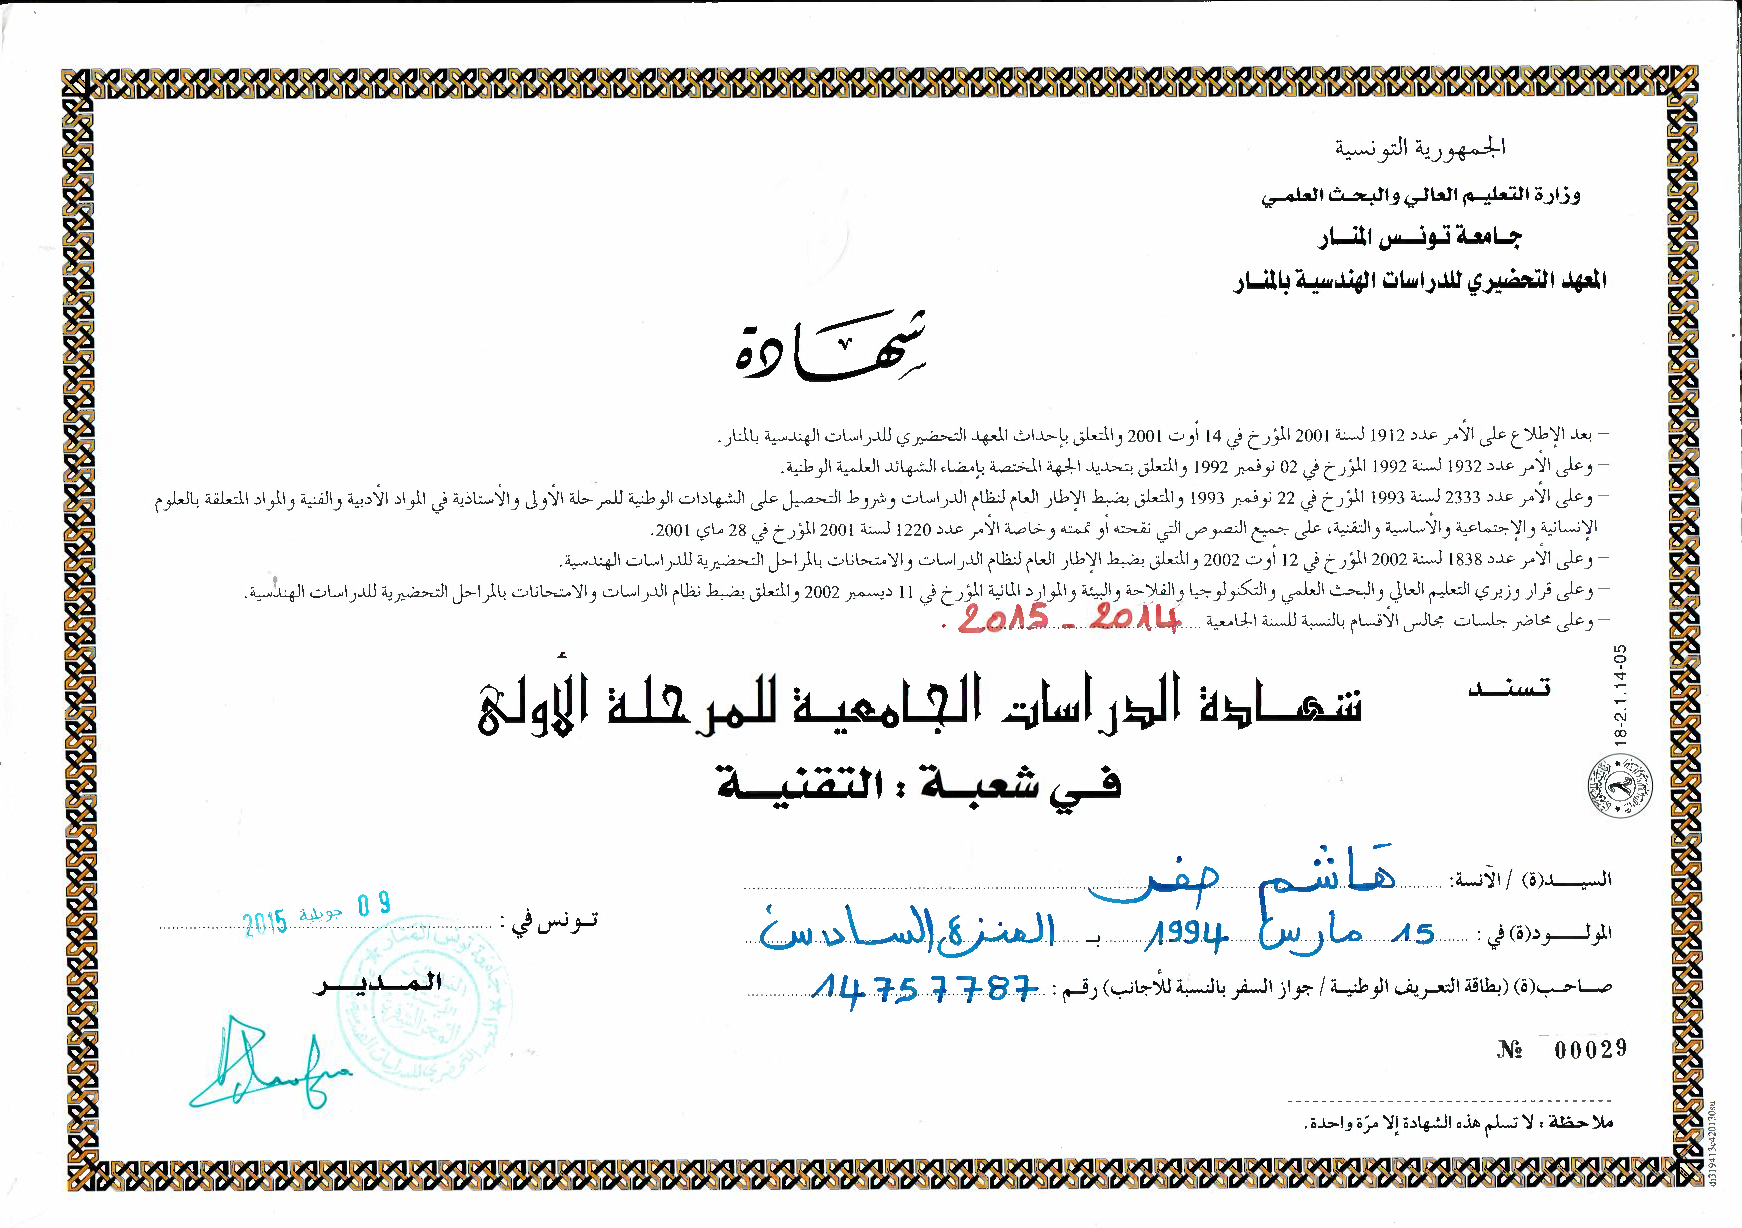 الجمهورية التونسية
وزارة التعليم العالي والبحث العلمي
جامعة تونس المنار
المعهد التحضيري للدراسات الهندسية بالمنار
شهادة
– بعد الإطلاع على الأمر عدد 1912 لسنة 2001 المؤرخ في 14 أوت 2001 والمتعلق بإحداث المعهد التحضيري للدراسات الهندسية بالمنار.
– وعلى الأمر عدد 1932 لسنة 1992 المؤرخ في 02 نوفمبر 1992 والمتعلق بتحديد الجهة المختصة بإمضاء الشهائد العلمية الوطنية.
– وعلى الأمر عدد 2333 لسنة 1993 المؤرخ في 22 نوفمبر 1993 والمتعلق بضبط الإطار العام لنظام الدراسات وشروط التحصيل على الشهادات الوطنية للمرحلة الأولى والأستاذية في المواد الأدبية والفنية والمواد المتعلقة بالعلوم
الإنسانية والإجتماعية والأساسية والتقنية، على جميع النصوص التي نقحته أو تممته وخاصة الأمر عدد 1220 لسنة 2001 المؤرخ في 28 ماي 2001.
– وعلى الأمر عدد 1838 لسنة 2002 المؤرخ في 12 أوت 2002 والمتعلق بضبط الإطار العام لنظام الدراسات والامتحانات بالمراحل التحضيرية للدراسات الهندسية.
– وعلى قرار وزيري التعليم العالي والبحث العلمي والتكنولوجيا والفلاحة والبيئة والموارد المائية المؤرخ في 11 ديسمبر 2002 والمتعلق بضبط نظام الدراسات والامتحانات بالمراحل التحضيرية للدراسات الهندسية.
– وعلى محاضر جلسات مجالس الأقسام بالنسبة للسنة الجامعية 2014 - 2015 .
18-2.1.14-05
تسند
شهادة الدراسات الجامعية للمرحلة الأولى
في شعبة : التقنية
السيد(ة) / الآنسة: هاشم صفر
المولود(ة) في : 15 مارس 1994 بـ المنزه السادس
صاحب(ة) (بطاقة التعريف الوطنية / جواز السفر بالنسبة للأجانب) رقم : 14757787
تونس في : 09 جويلية 2015
المدير
№ 00029
ملاحظة : لا تسلم هذه الشهادة إلا مرّة واحدة.